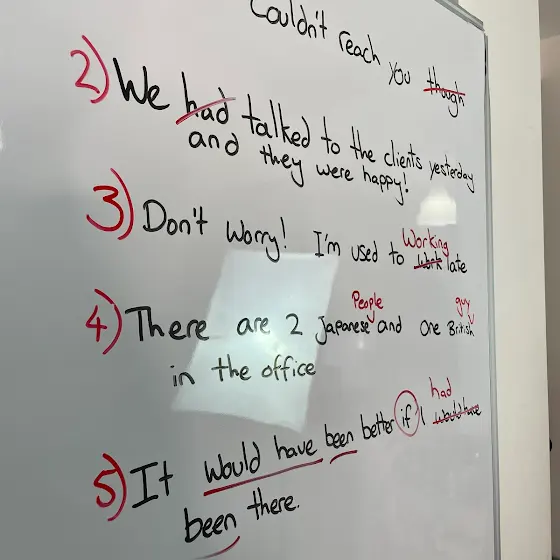 Couldn't reach you though
2) We had talked to the clients yesterday
and they were happy!
Working
3) Don't worry! I'm used to work late
People guy
4) There are 2 Japanese and One British
in the office
had
5) It would have been better if I would have
been there.